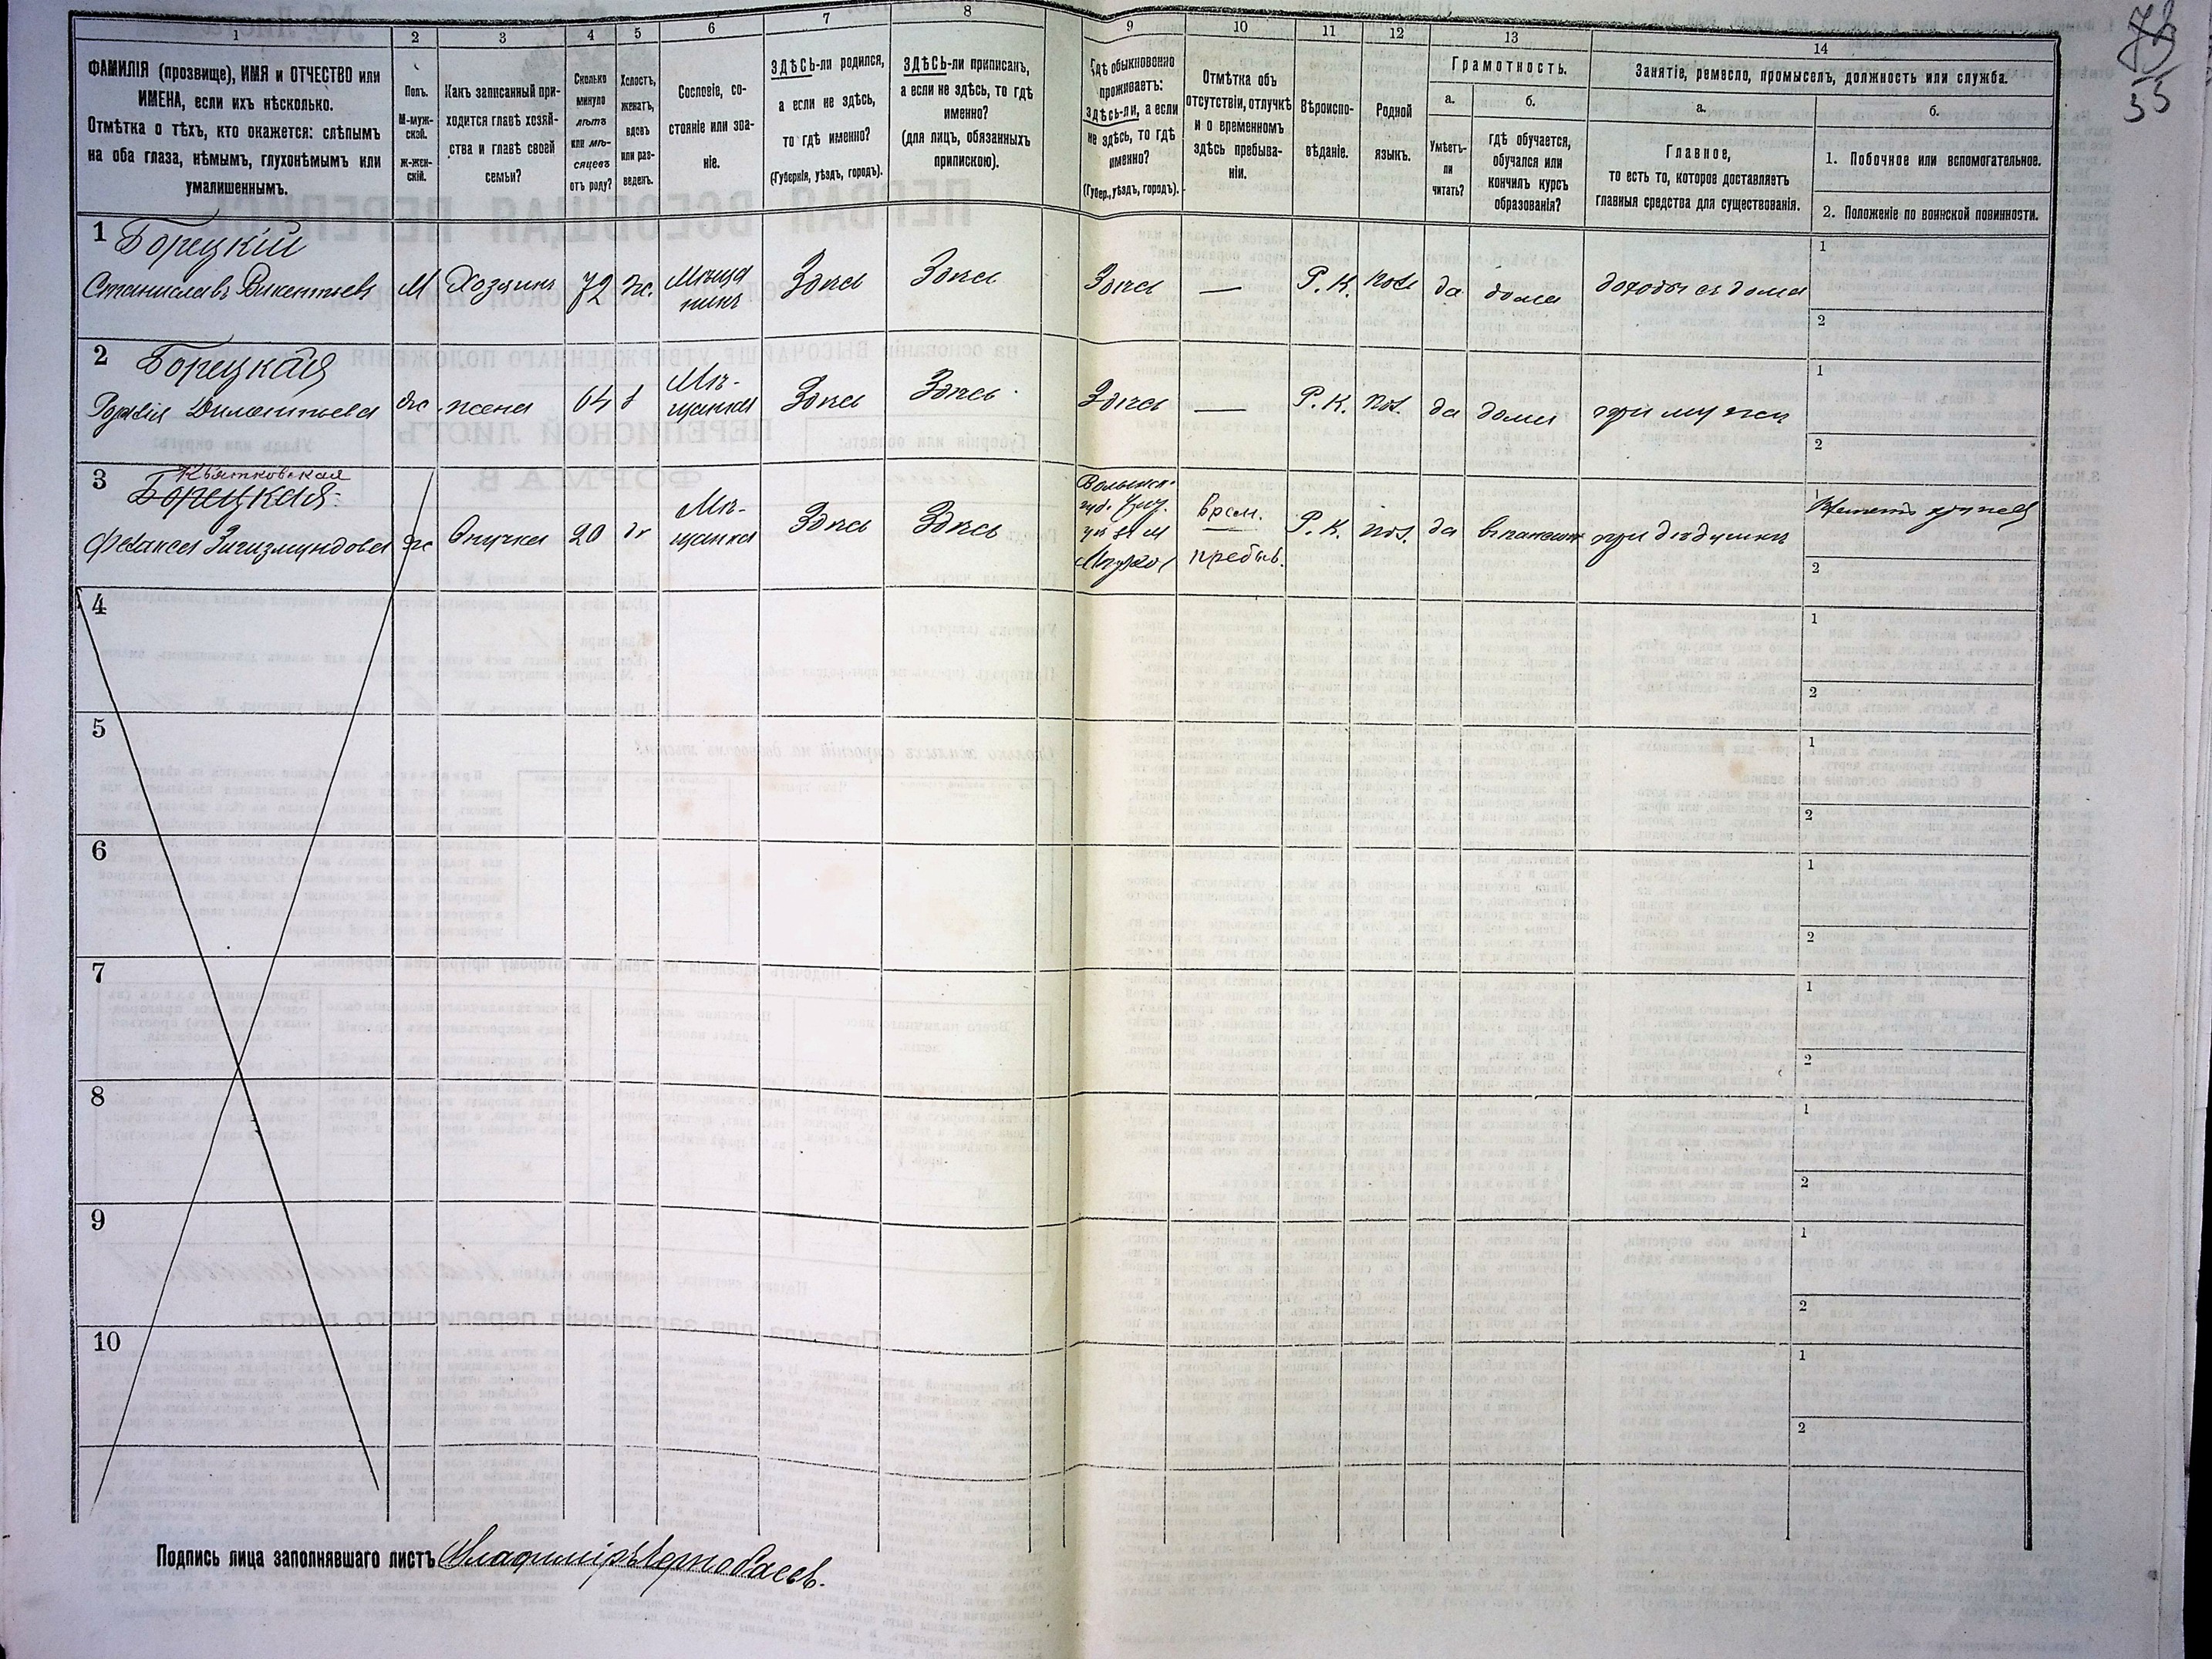 73
55
1
2
3
4
5
6
7
8
9
10
11
12
13
14
ФАМИЛІЯ (прозвище), ИМЯ и ОТЧЕСТВО или
ИМЕНА, если ихъ нѣсколько.
Отмѣтка о тѣхъ, кто окажется: слѣпымъ
на оба глаза, нѣмымъ, глухонѣмымъ или
умалишеннымъ.
Полъ.
М-муж-
ской.
ж-жен-
скій.
Какъ записанный при-
ходится главѣ хозяй-
ства и главѣ своей
семьи?
Сколько
минуло
лѣтъ
или мѣ-
сяцевъ
отъ роду?
Холостъ,
женатъ,
вдовъ
или раз-
веденъ.
Сословіе, со-
стояніе или зва-
ніе.
ЗДѢСЬ-ли родился,
а если не здѣсь,
то гдѣ именно?
(Губернія, уѣздъ, городъ).
ЗДѢСЬ-ли приписанъ,
а если не здѣсь, то гдѣ
именно?
(для лицъ, обязанныхъ
припискою).
Гдѣ обыкновенно
проживаетъ:
здѣсь-ли, а если
не здѣсь, то гдѣ
именно?
(Губер., уѣздъ, городъ).
Отмѣтка объ
отсутствіи, отлучкѣ
и о временномъ
здѣсь пребыва-
ніи.
Вѣроиспо-
вѣданіе.
Родной
языкъ.
Грамотность.
а.
Умѣетъ-
ли
читать?
б.
гдѣ обучается,
обучался или
кончилъ курсъ
образованія?
Занятіе, ремесло, промыселъ, должность или служба.
а.
Главное,
то есть то, которое доставляетъ
главныя средства для существованія.
б.
1. Побочное или вспомогательное.
2. Положеніе по воинской повинности.
1 Борецкій
Станиславъ Викентьев М Хозяинъ 72 ж. Мѣща
нинъ Здѣсь Здѣсь Здѣсь — Р. К. пол да дома доходы съ дома
1
2
2 Борецкая
Викентьева ж жена 64 Мѣ-
щанка Здѣсь Здѣсь Здѣсь — Р. К. пол. да дома при мужѣ
1
2
3 Квятковская
Борецкая
Зигизмундова ж Внучка 20 Мѣ-
щанка Здѣсь Здѣсь
Волынск.
губ.
Врем.
пребыв.
Р. К. пол. да при дѣдушкѣ
1
2
4
1
2
5
1
2
6
1
2
7
1
2
8
1
2
9
1
2
10
1
2
Подпись лица заполнявшаго листъ Владиміръ